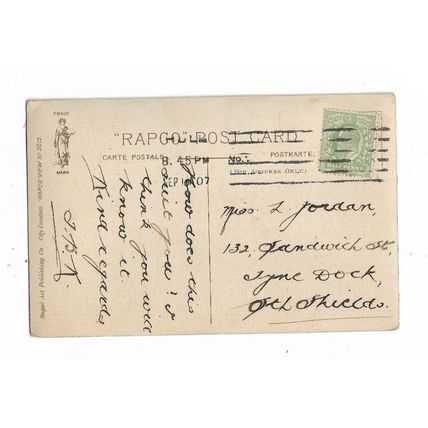 TRADE
MARK
"RAPCO" POST CARD
CARTE POSTALE
POSTKARTE.
(FOR ADDRESS ONLY.)
8.45PM
SEP
07
HALF PENNY
Regal Art Publishing Co. City London. "RAPCO" VIEW No 2013
How does this
suit you? I
think you will
know it.
Kind regards
Miss L Jordan,
132, Sandwich St,
Tyne Dock,
Sth Shields.